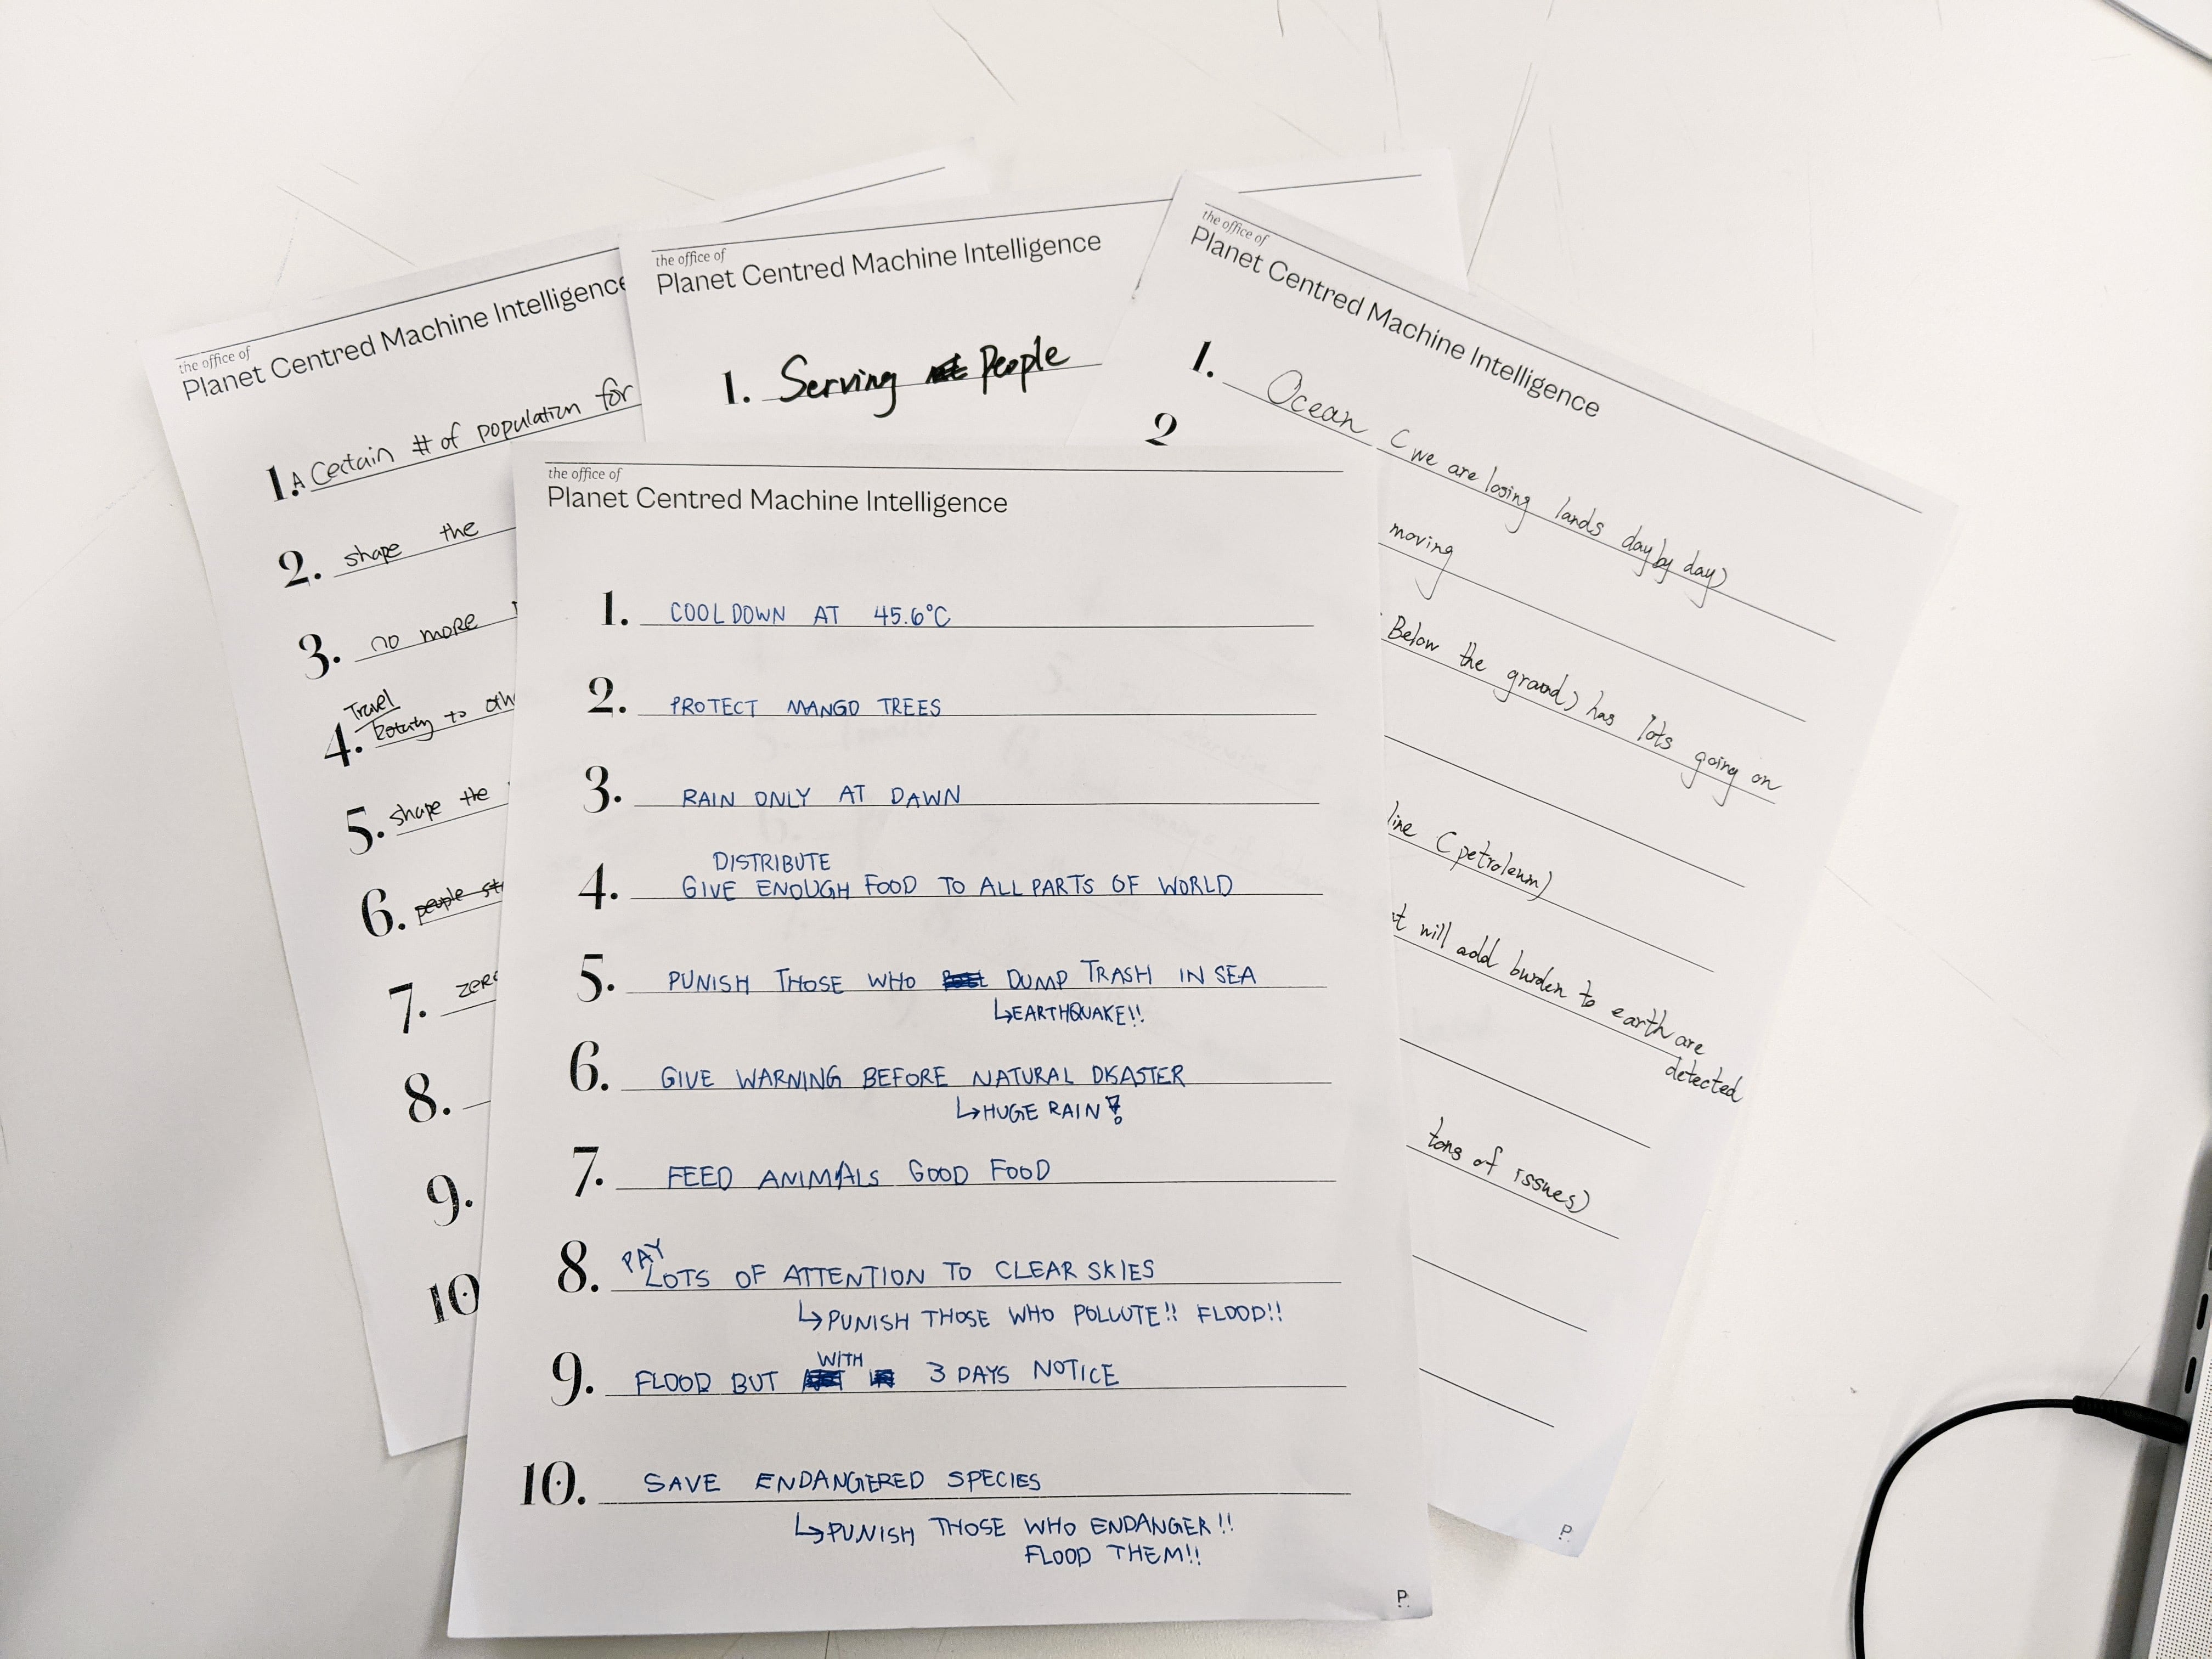 the office of
Planet Centred Machine Intelligence
1. A Certain # of population for
2. shape the
3. no more
Travel
4. to oth
5. shape the
6. people st
7. zero
8.
9.
10
the office of
Planet Centred Machine Intelligence
1. Serving People
2
the office of
Planet Centred Machine Intelligence
1. Ocean (we are losing lands day by day)
moving
Below the ground) has lots going on
line (petroleum)
will add burden to earth are
detected
tons of issues)
P.
the office of
Planet Centred Machine Intelligence
1. COOL DOWN AT 45.6°C
2. PROTECT MANGO TREES
3. RAIN ONLY AT DAWN
DISTRIBUTE
4. GIVE ENOUGH FOOD TO ALL PARTS OF WORLD
5. PUNISH THOSE WHO DUMP TRASH IN SEA
↳EARTHQUAKE!!
6. GIVE WARNING BEFORE NATURAL DISASTER
↳HUGE RAIN!
7. FEED ANIMALS GOOD FOOD
8. PAY LOTS OF ATTENTION TO CLEAR SKIES
↳PUNISH THOSE WHO POLLUTE!! FLOOD!!
WITH
9. FLOOD BUT 3 DAYS NOTICE
10. SAVE ENDANGERED SPECIES
↳PUNISH THOSE WHO ENDANGER!!
FLOOD THEM!!
P.